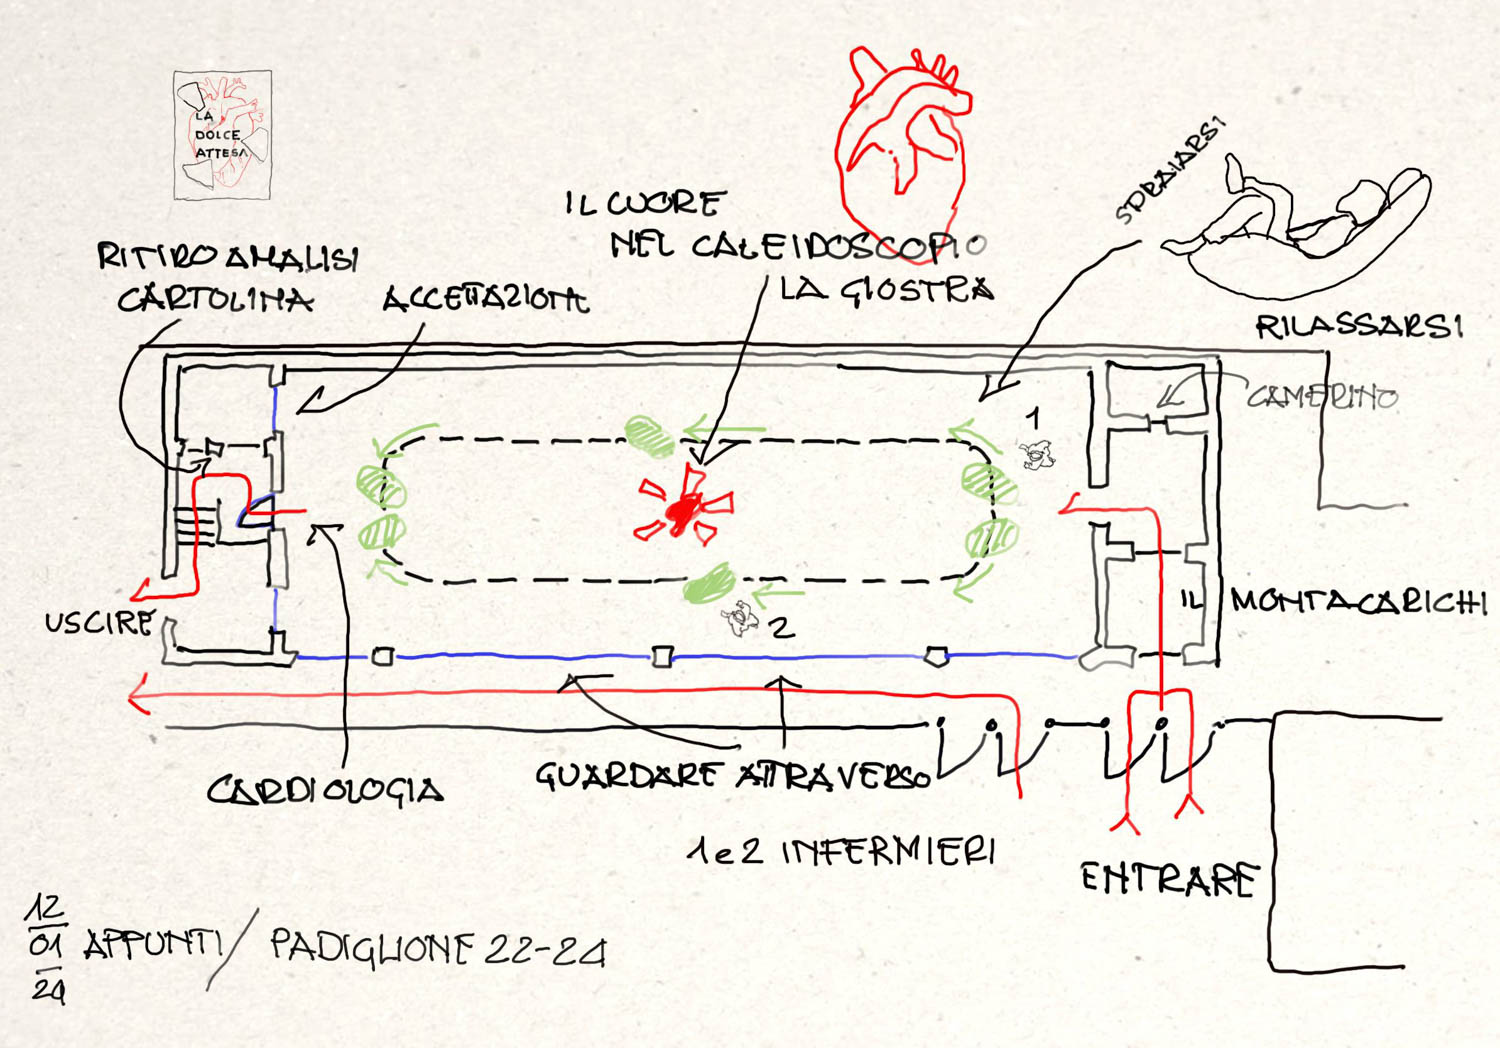 LA
DOLCE
ATTESA
IL CUORE
NEL CALEIDOSCOPIO
LA GIOSTRA
SDRAIARSI
RILASSARSI
RITIRO ANALISI
CARTOLINA
ACCETTAZIONE
CAMERINO
1
IL MONTACARICHI
USCIRE
2
CARDIOLOGIA
GUARDARE ATTRAVERSO
1 e 2 INFERMIERI
ENTRARE
12
01
24
APPUNTI / PADIGLIONE 22-24